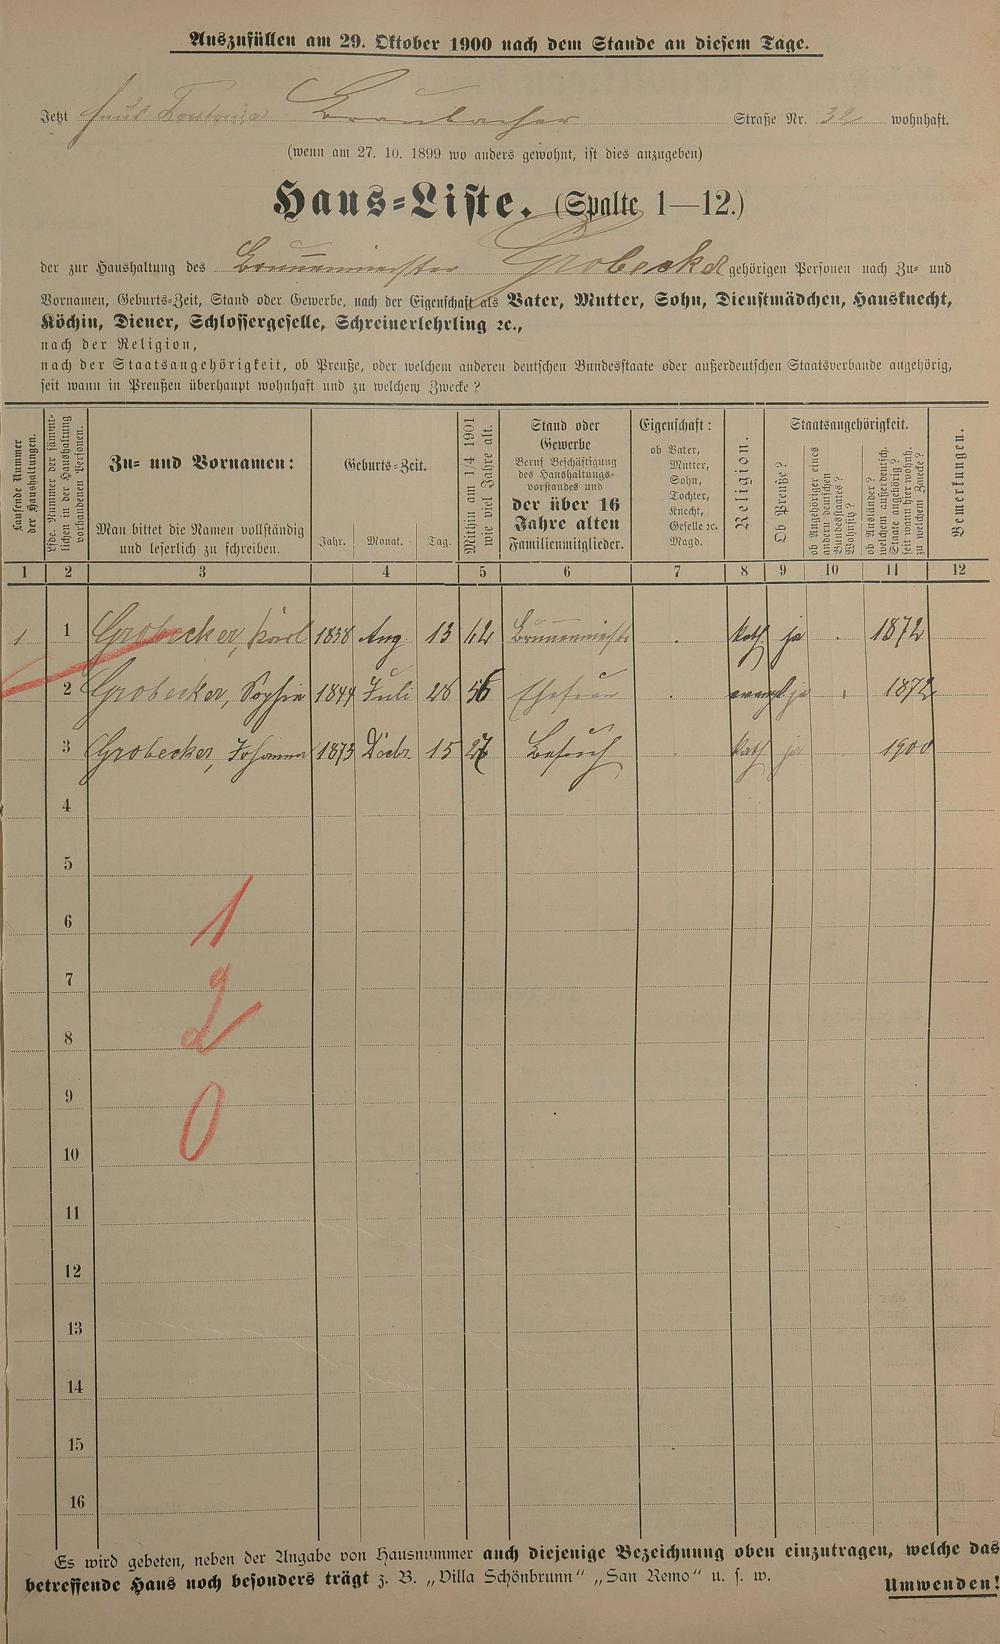 Auszufüllen am 29. Oktober 1900 nach dem Stande an diesem Tage.
Jetzt Haus Braubacher Straße Nr. 32 wohnhaft.
(wenn am 27. 10. 1899 wo anders gewohnt, ist dies anzugeben)
Haus-Liste. (Spalte 1—12.)
der zur Haushaltung des Brunnenmeister Grobecker gehörigen Personen nach Zu- und
Vornamen, Geburts-Zeit, Stand oder Gewerbe, nach der Eigenschaft als Vater, Mutter, Sohn, Dienstmädchen, Hausknecht,
Köchin, Diener, Schlossergeselle, Schreinerlehrling ꝛc.,
nach der Religion,
nach der Staatsangehörigkeit, ob Preuße, oder welchem anderen deutschen Bundesstaate oder außerdeutschen Staatsverbande angehörig,
seit wann in Preußen überhaupt wohnhaft und zu welchem Zwecke?
Laufende Nummer
der Haushaltungen.
Lfde. Nummer der sämmt-
lichen in der Haushaltung
vorhandenen Personen.
Zu- und Vornamen:
Man bittet die Namen vollständig
und leserlich zu schreiben.
Geburts-Zeit.
Jahr. Monat. Tag.
Mithin am 1/4 1901
wie viel Jahre alt.
Stand oder
Gewerbe
Beruf Beschäftigung
des Haushaltungs-
vorstandes und
der über 16
Jahre alten
Familienmitglieder.
Eigenschaft:
ob Vater,
Mutter,
Sohn,
Tochter,
Knecht,
Geselle ꝛc.
Magd.
Religion.
Staatsangehörigkeit.
Ob Preuße?
ob Angehöriger eines
andern deutschen
Bundesstaates?
Wohnsitz?
ob Ausländer?
welchem außerdeutsch.
Staate angehörig?
seit wann hier wohnh.
zu welchem Zwecke?
Bemerkungen.
1 2 3 4 5 6 7 8 9 10 11 12
1 1 Grobecker, Karl 1838 Aug. 13 62 Brunnenmeister Kath ja 1872
2 Grobecker, Sophie 1844 Juli 28 56 Ehefrau evangl ja 1872
3 Grobecker, Johanna 1873 Decbr. 15 27 Besuch Kath ja 1900
4
5
6
1
7
2
8
9
0
10
11
12
13
14
15
16
Es wird gebeten, neben der Angabe von Hausnummer auch diejenige Bezeichnung oben einzutragen, welche das
betreffende Haus noch besonders trägt z. B. „Villa Schönbrunn“ „San Remo“ u. s. w.
Umwenden!